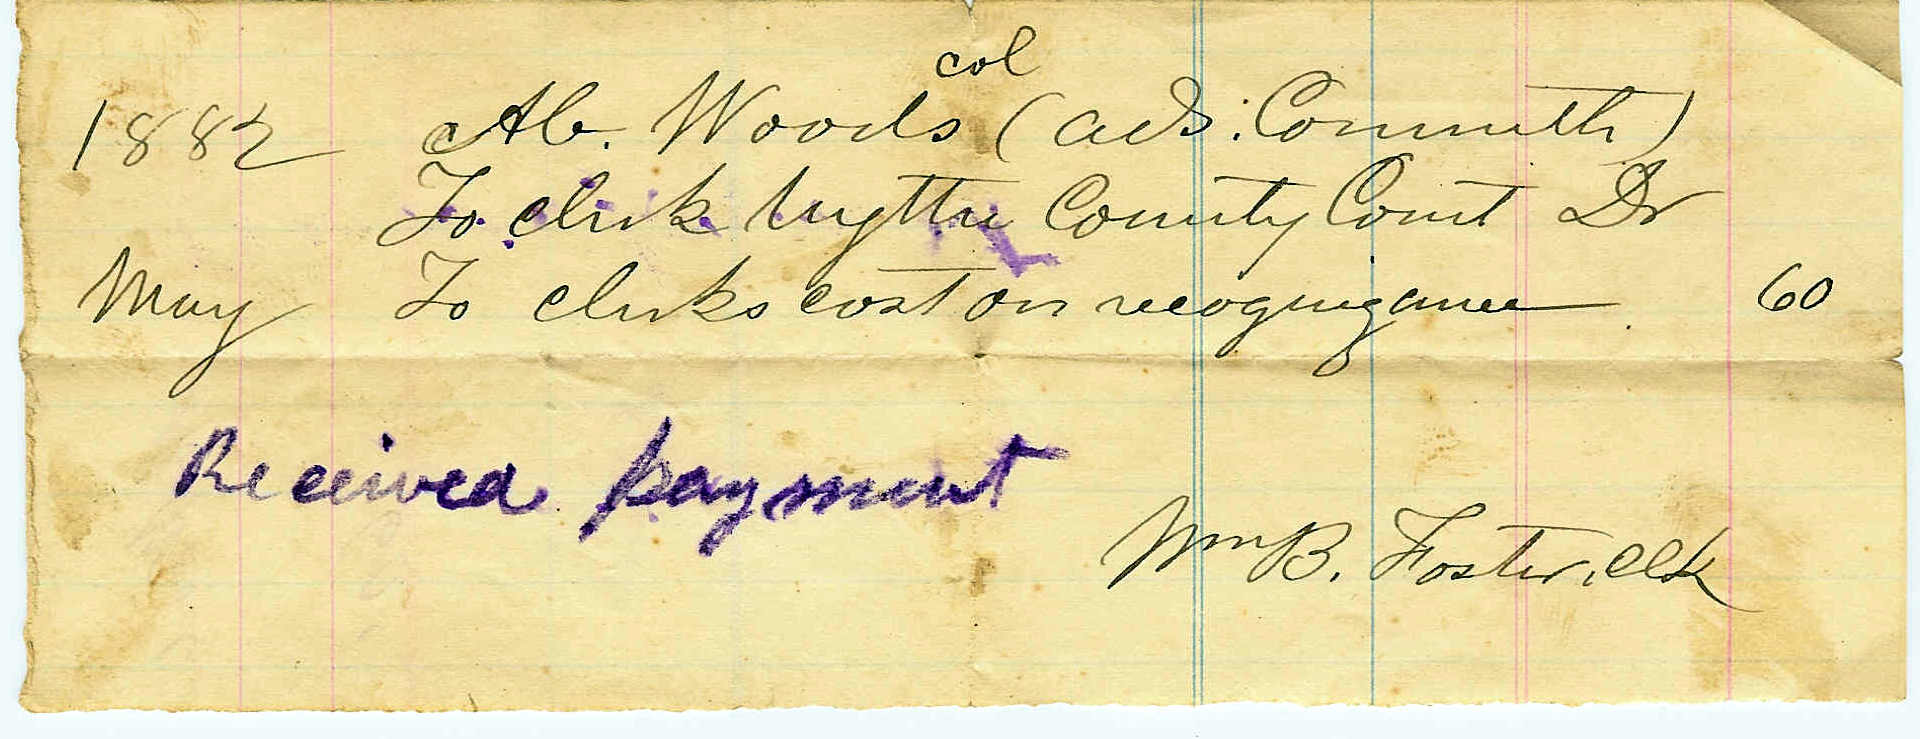 col
1882 Ab. Woods (ads: Commwth)
To clerk Wythe County Court Dr
May To clerks cost on recognizance 60
Received payment
Wm B. Foster, clk